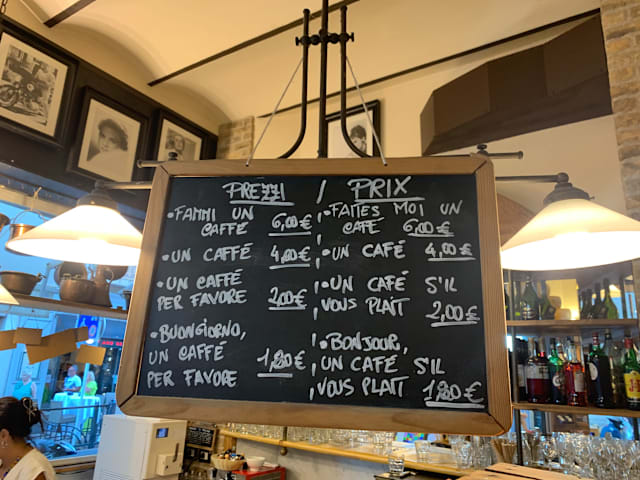 PREZZI / PRIX
• FAMMI UN
CAFFÈ 6,00€
• UN CAFFÉ 4,00€
• UN CAFFÉ
PER FAVORE 2,00€
• BUONGIORNO,
UN CAFFÉ
PER FAVORE 1,80€
• FAITES MOI UN
CAFÉ 6,00€
• UN CAFÉ 4,00€
• UN CAFÉ S'IL
VOUS PLAIT 2,00€
• BONJOUR,
UN CAFÉ S'IL
VOUS PLAIT 1,80€